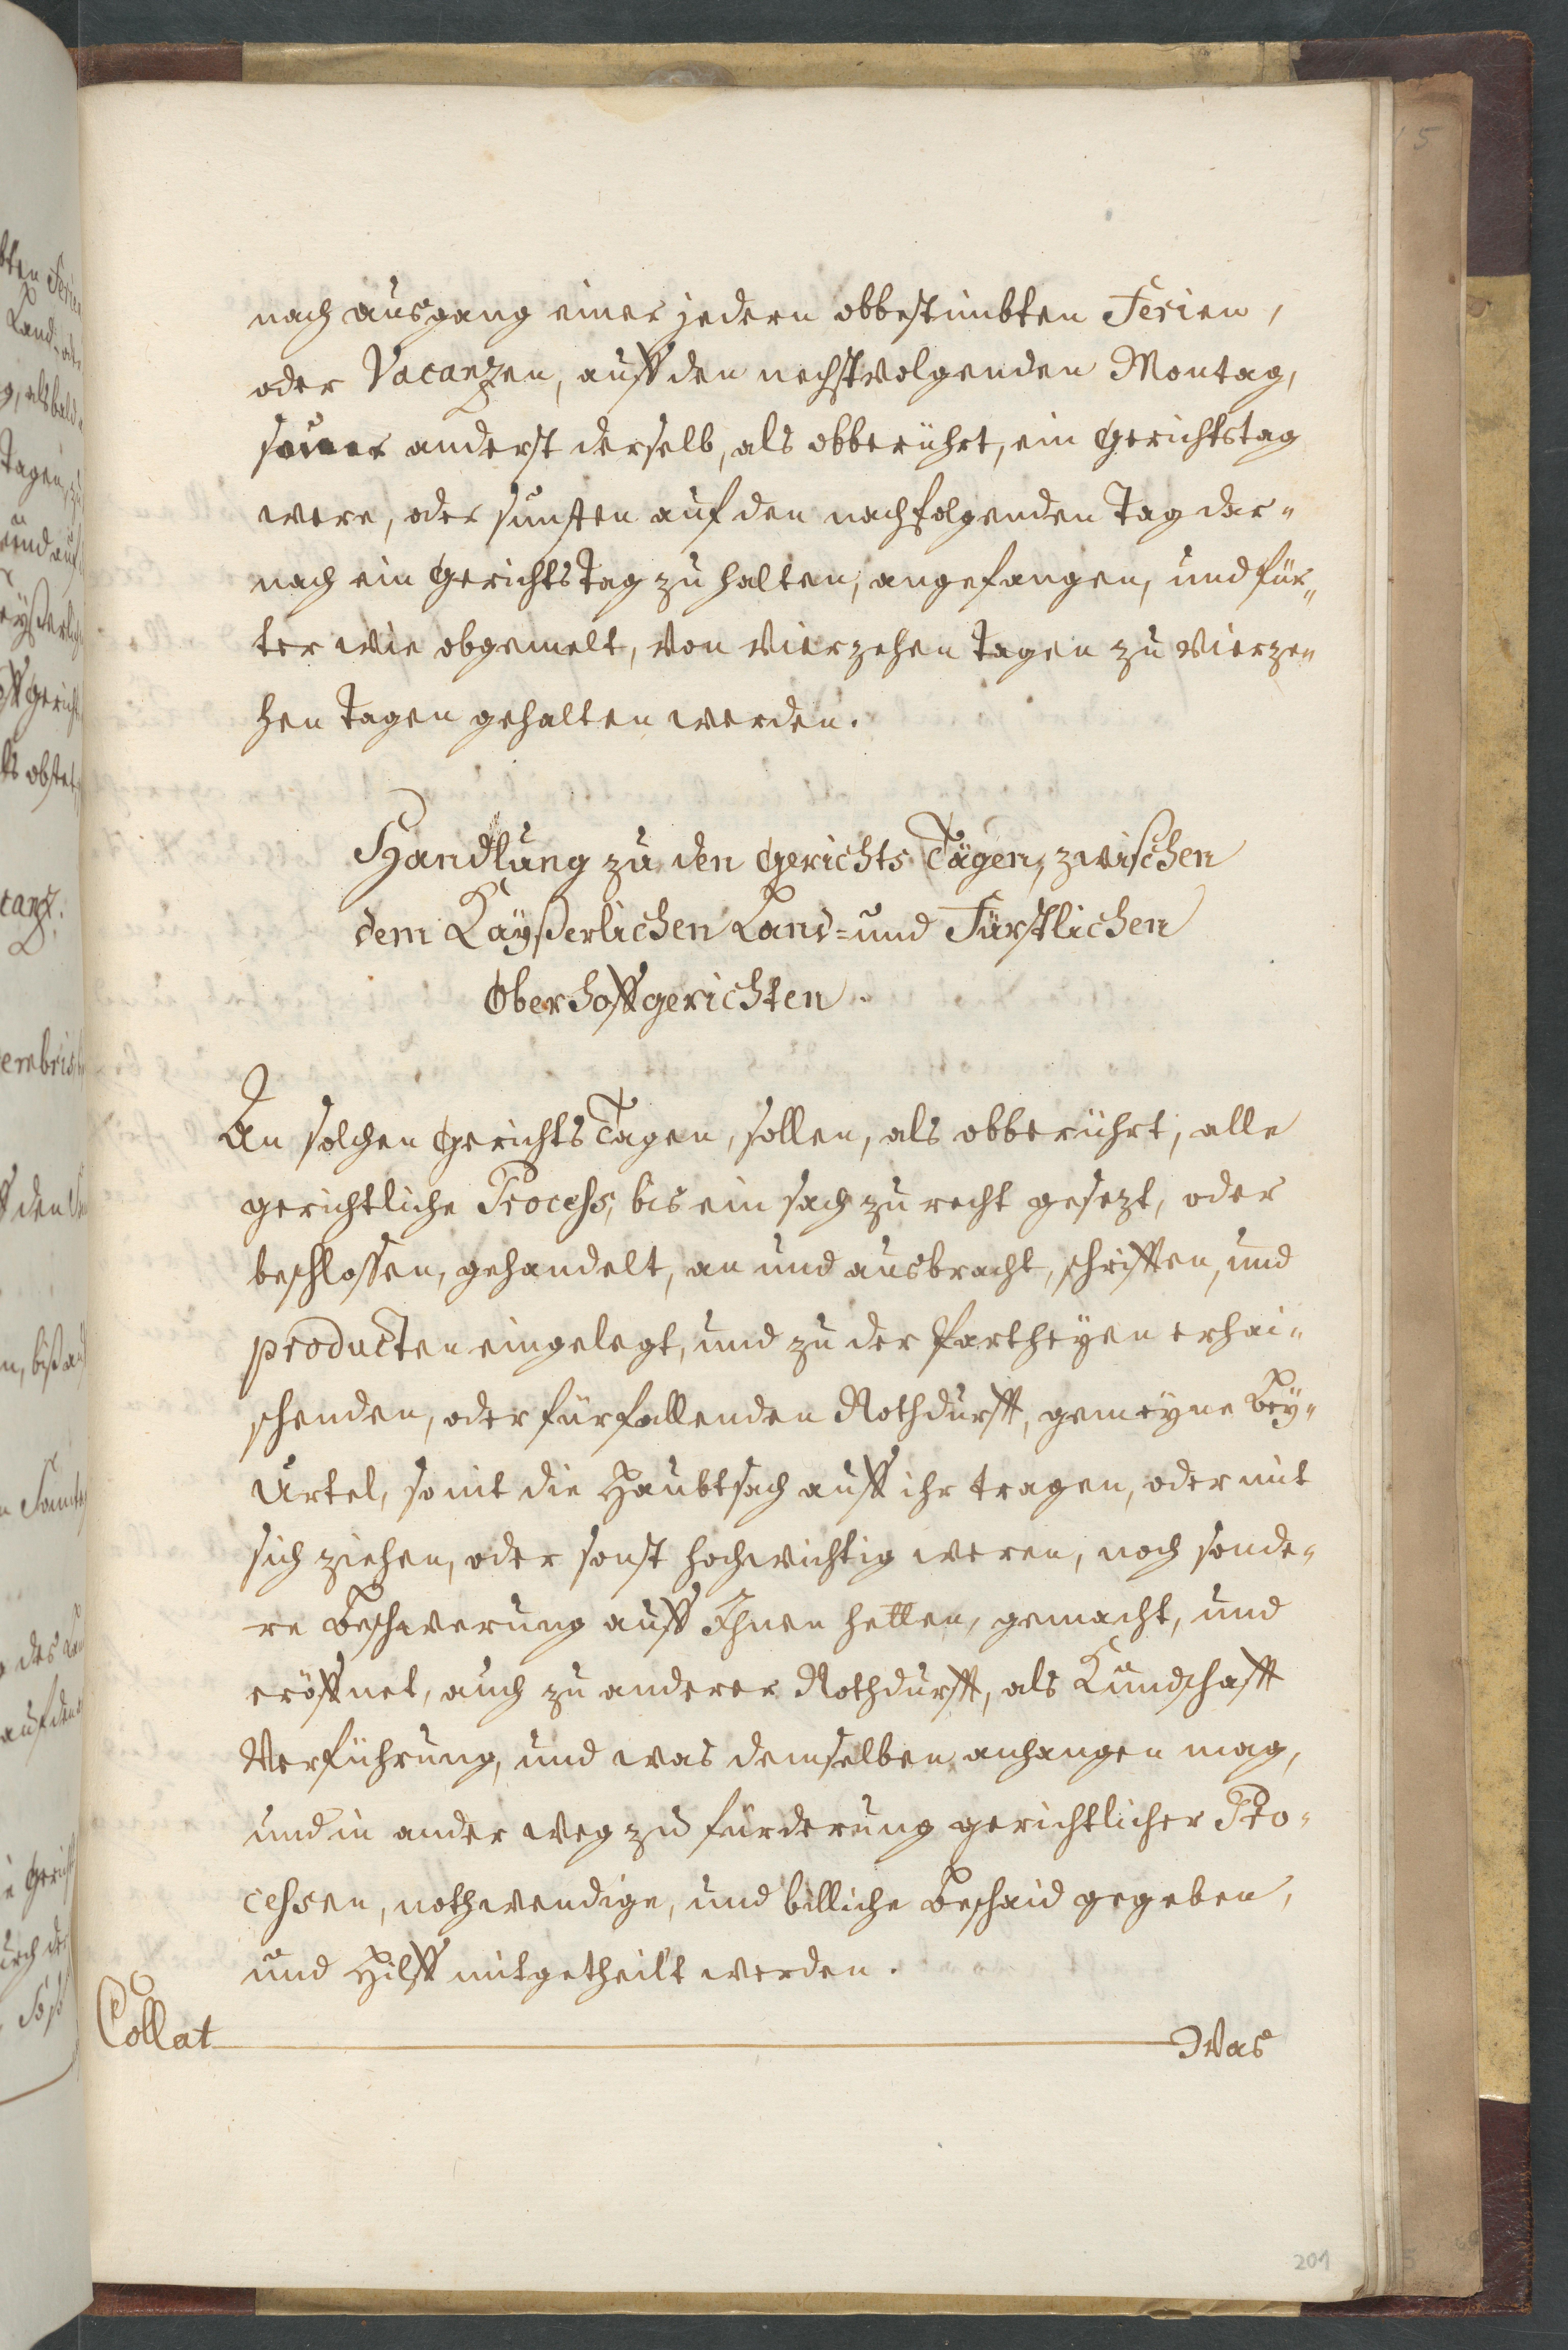 nach ausgang einer jedern obbestimbten Ferien,
oder Vacanzen, auff den nechstvolgenden Montag,
souer anderst derselb, als obberührt, ein Gerichtstag
were, oder sunsten auf den nachfolgenden Tag dar-
nach ein Gerichts Tag zu halten, angefangen, und für-
ter wie obgemelt, von vierzehen Tagen zu vierze-
hen Tagen gehalten werden.
Handlung zu den Gerichts Tägen, zwischen
dem Kaÿßerlichen Land- und Fürstlichen
Oberhoffgerichten.
An solchen Gerichts Tagen, sollen, als obberührt, alle
gerichtliche Process, bis ein sach zu recht gesezt, oder
beschlossen, gehandelt, an und ausbracht, schrifften, und
producten eingelegt, und zu der Partheÿen erhai-
schenden, oder fürfallenden Nothdurfft, gemeÿne Beÿ-
Urtel, so nit die Haubtsach auff ihr tragen, oder mit
sich ziehen, oder sonst hochwichtig weren, noch sonde-
re Beschwerung auff Ihnen hetten, gemacht, und
eröffnet, auch zu anderer Nothdurfft, als Kundschafft
Verführung, und was demselben anhangen mag,
und in ander weg zu fürderung gerichtlicher Pro-
cessen, nothwendige, und billiche Beschaid gegeben,
und Hilff mitgetheilt werden.
Collat Was
201